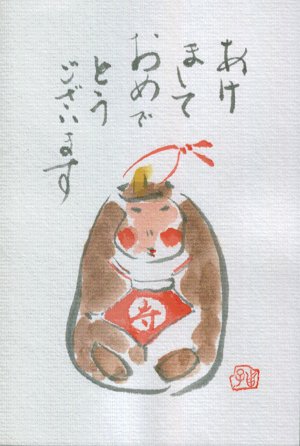 あけ
まして
おめで
とう
ございます